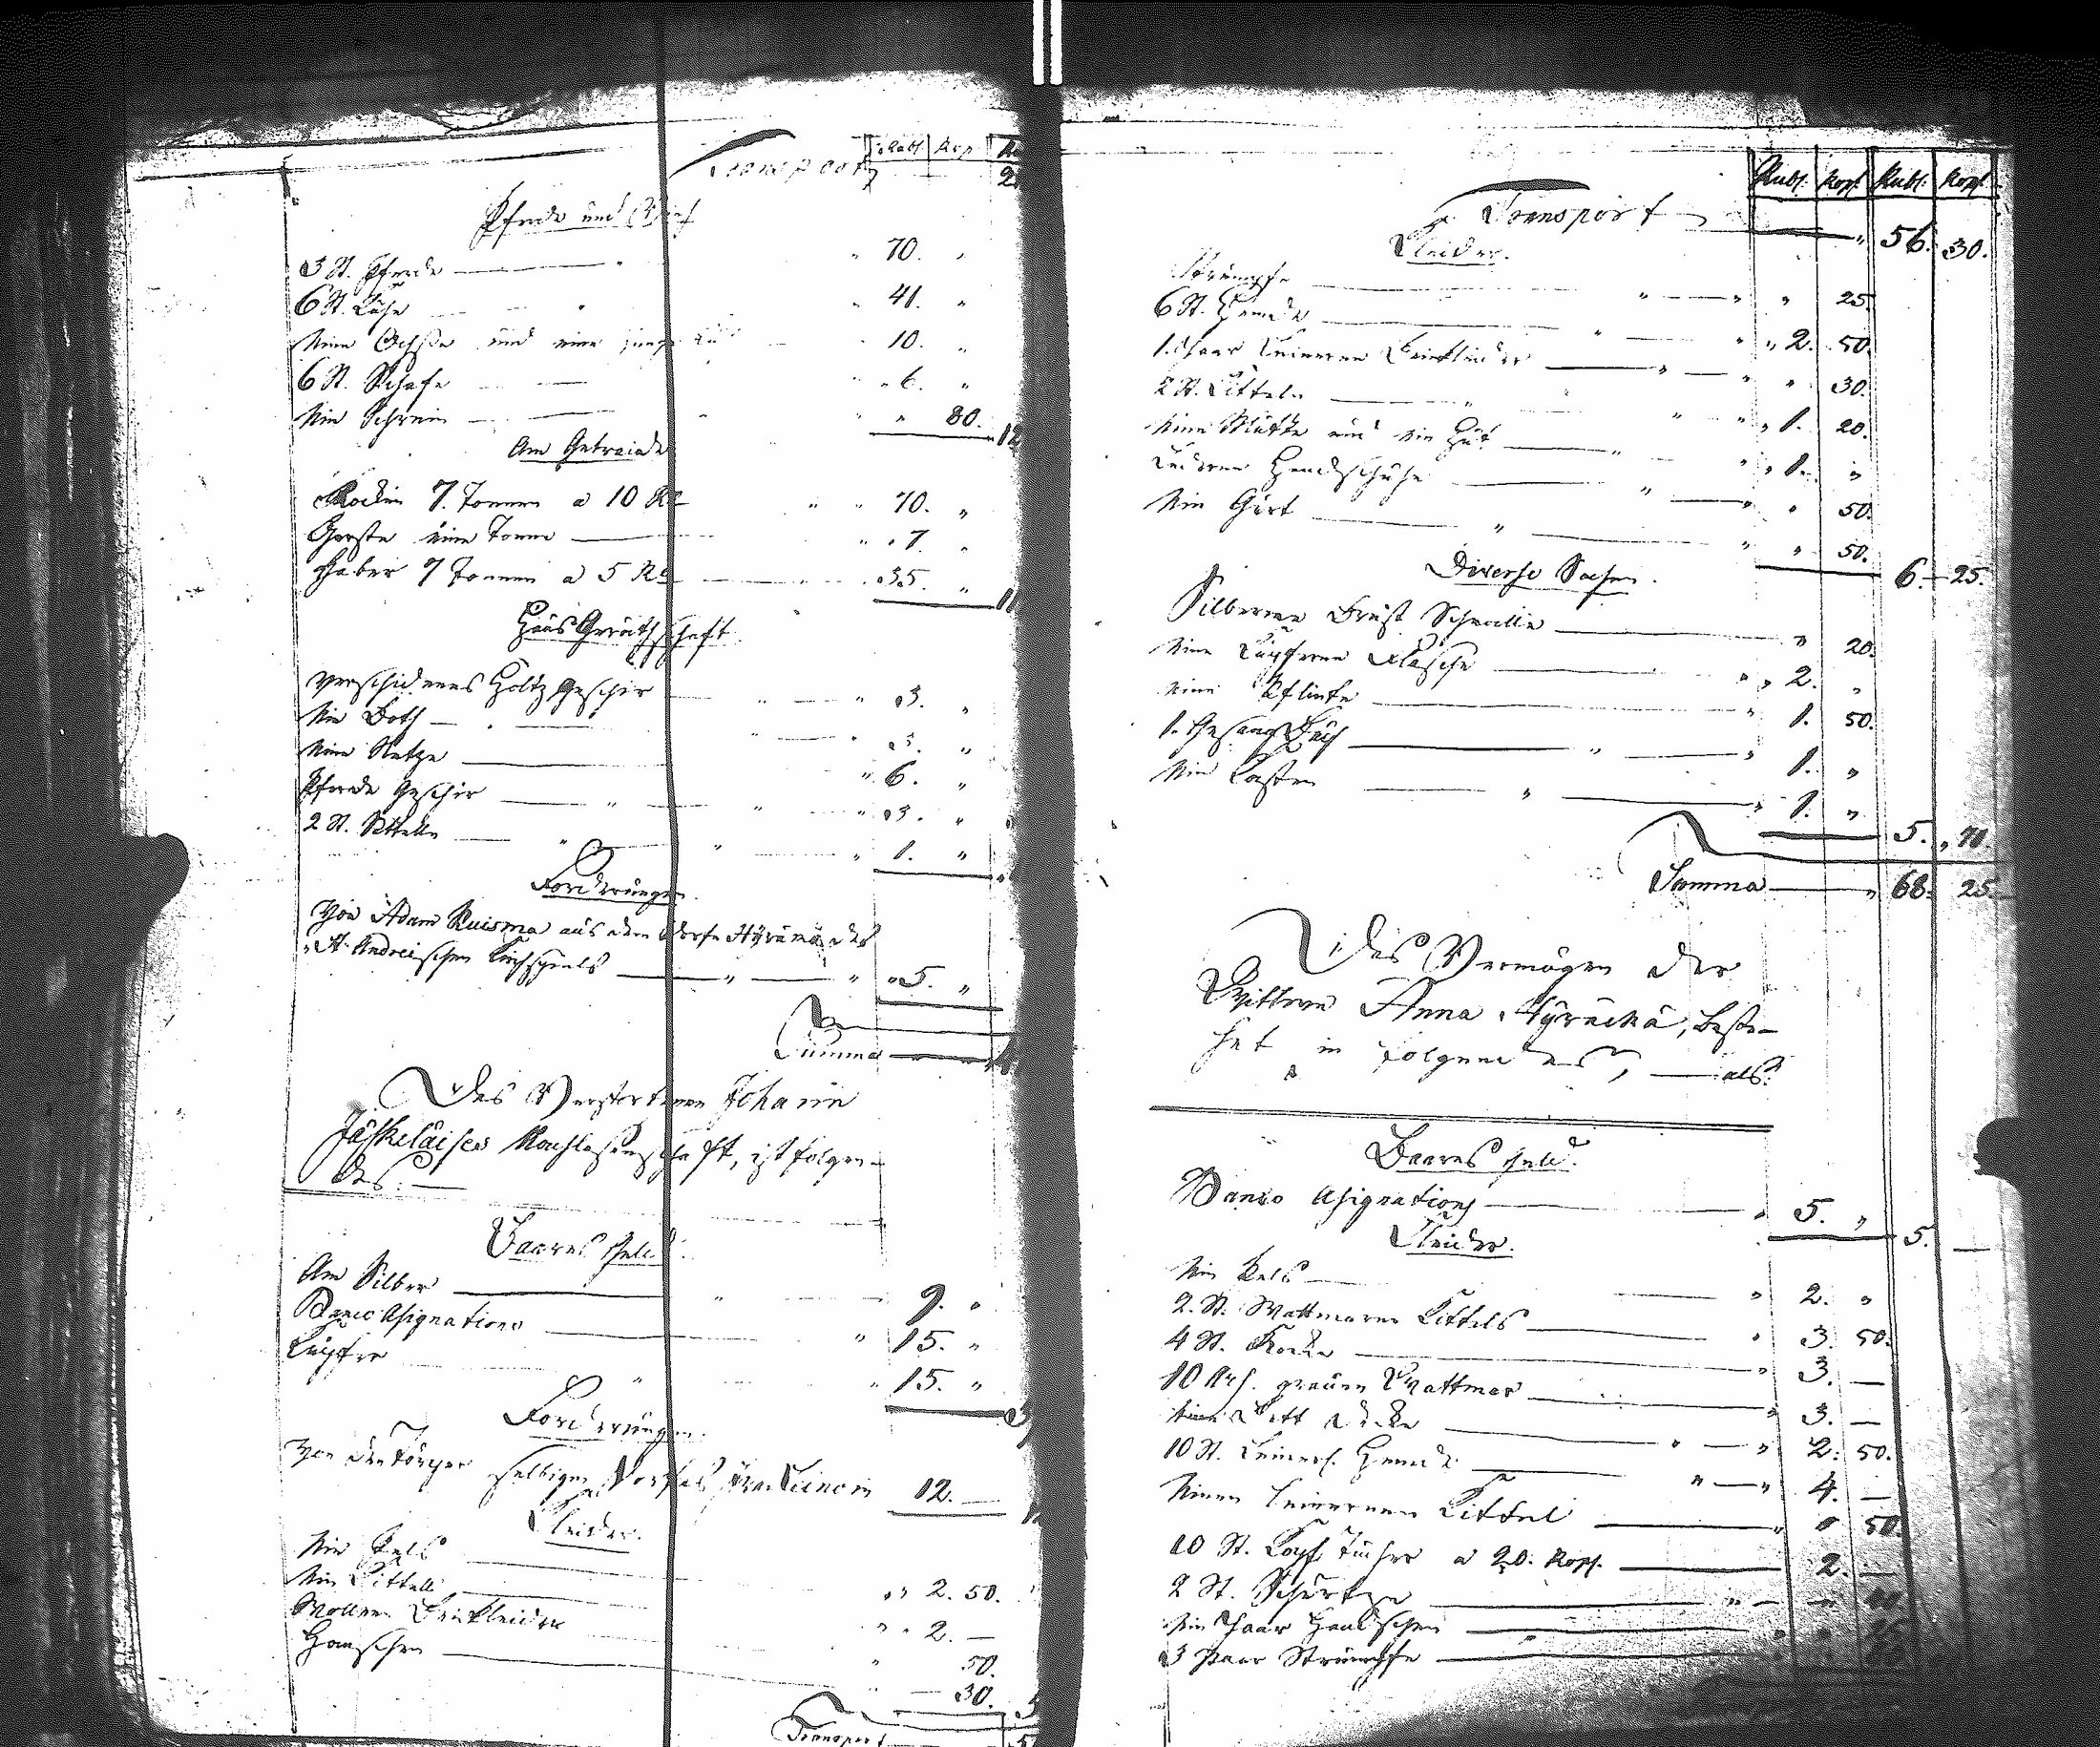 Rubl. Kop.
Transport
Pferde und Vieh
3 St. Pferde — 70. "
6 St. Kühe — 41. "
Eine Ochse und eine junge Kuh — 10. "
6 St. Schafe — 6. "
Ein Schwein — " 80.
An Getraide
Rocken 7. Tonnen a 10 Rl — 70. "
Gerste eine Tonne — 7. "
Haber 7 Tonnen a 5 Rl — 35. "
Haus Geräthschaft
Verschidenes Holtz Geschir — 3. "
Ein Both — 3. "
Eine Netze — 6. "
Pferde Geschir — 3. "
2 St. Sättelle — 1. "
Forderungen
Von Adam Ruisma aus dem Dorfe Hÿrämä des
St. Andreischen Kirchspiels — 5. "
Summa
Des Verstorbenen Johann
Jäskeläises Nachlasenschaft, ist folgen-
des.
Baares Geld.
An Silber — 9. "
Banco Asignations — 15. "
Kupfer — 15. "
Forderungen.
Von selbigen Dorfes — 12. —
Kleider.
Ein Pels — 2. 50.
Ein Kittell — 2. —
Wollene Beinkleider — 50.
Hanschen — 30.
Transport
Rubl. Kop. Rubl. Kop.
Transport — 56. 30.
Kleider.
Strümpfe — " 25.
6 St. Hemde — 2. 50.
1. Paar Leinenen Beinkleider — " 30.
2 St. Kitteln — 1. 20.
Eine Mütze und ein Hut — 1. "
Lederne Handschuhe — " 50.
Ein Gurt — " 50.
6. 25.
Diverse Sachen.
Silberne Brust Schnalle — " 20.
Eine Kupferne Flasche — 2. "
Eine Flinte — 1. 50.
1. Gesang Buch — 1. "
Ein Kasten — 1. "
5. 70.
Summa — 68. 25.
Das Vermögen der
Wittwe Anna Hÿrückä, beste-
het in folgendes, — als:
Baares Geld.
Banco Asignations — 5. " 5. —
Kleider.
Ein Pels — 2. "
2. St. Wattmarne Kittels — 3. 50.
4 St. Röcke — 3. —
10 Arh. grauen Wattmar — 3. —
Eine Bett Decke — 2. 50.
10 St. Leinens. Hemde — 4. —
Einen leinernen Kittel — " 50.
10 St. Kopf Tücher a 20. Kop. — 2. —
2 St. Schürtze —
Ein Paar Handschen —
3 Paar Strümpfe —